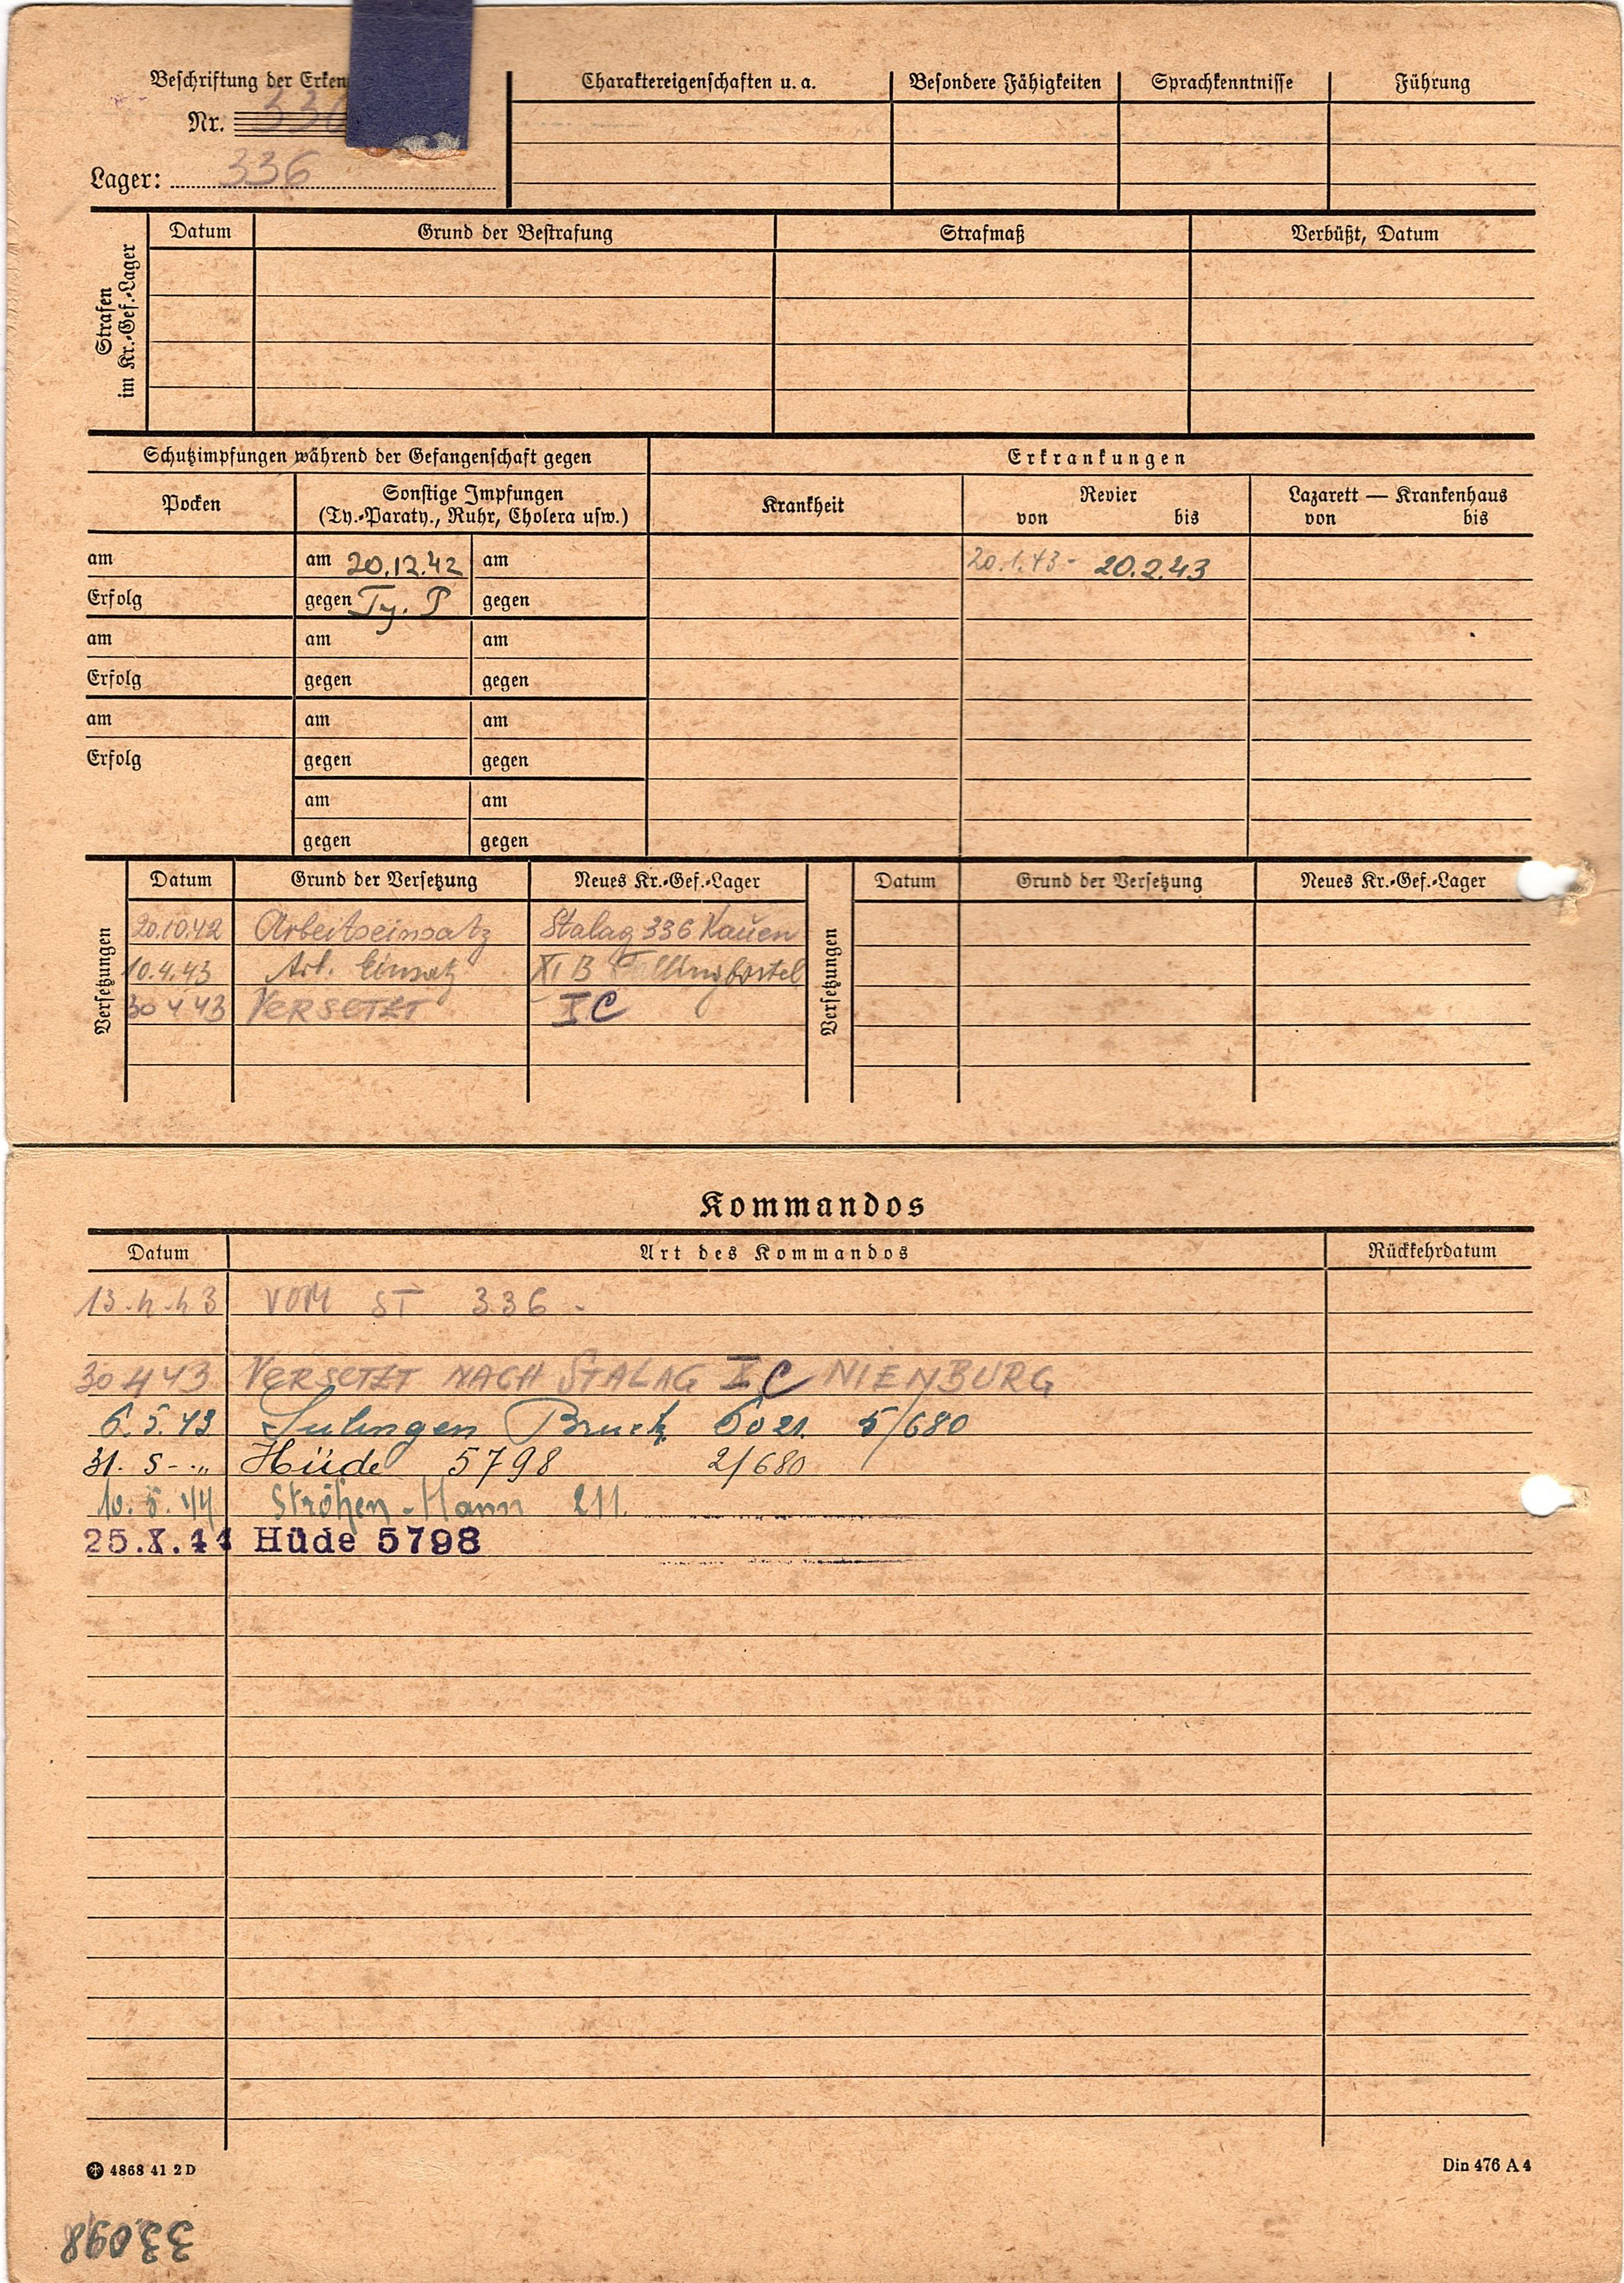 Beschriftung der Erken
Nr. 336
Lager: 336
Charaktereigenschaften u. a. Besondere Fähigkeiten Sprachkenntnisse Führung
Strafen im Kr.-Gef.-Lager
Datum Grund der Bestrafung Strafmaß Verbüßt, Datum
Schutzimpfungen während der Gefangenschaft gegen Erkrankungen
Pocken Sonstige Impfungen (Ty.-Paraty., Ruhr, Cholera usw.) Krankheit Revier von bis Lazarett — Krankenhaus von bis
am am 20.12.42 am 20.1.43- 20.2.43
Erfolg gegen Ty. P gegen
am am am
Erfolg gegen gegen
am am am
Erfolg gegen gegen
am am
gegen gegen
Versetzungen Datum Grund der Versetzung Neues Kr.-Gef.-Lager Versetzungen Datum Grund der Versetzung Neues Kr.-Gef.-Lager
20.10.42 Arbeitseinsatz Stalag 336 Kauen
10.4.43 Arb. Einsatz XI B Fallingbostel
30 4 43 VERSETZT X C
Kommandos
Datum Art des Kommandos Rückkehrdatum
13.4.43 VOM ST 336.
30 4 43 VERSETZT NACH STALAG X C NIENBURG
6.5.43 Sulingen Bruch 6021 5/680
31. 5. „ Hüde 5798 2/680
10.5.44 Ströhen-Hann 211.
25.X.44 Hüde 5798
4868 41 2 D Din 476 A 4
33098